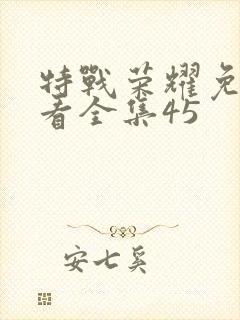 特戰荣耀免
看全集45
安七奚